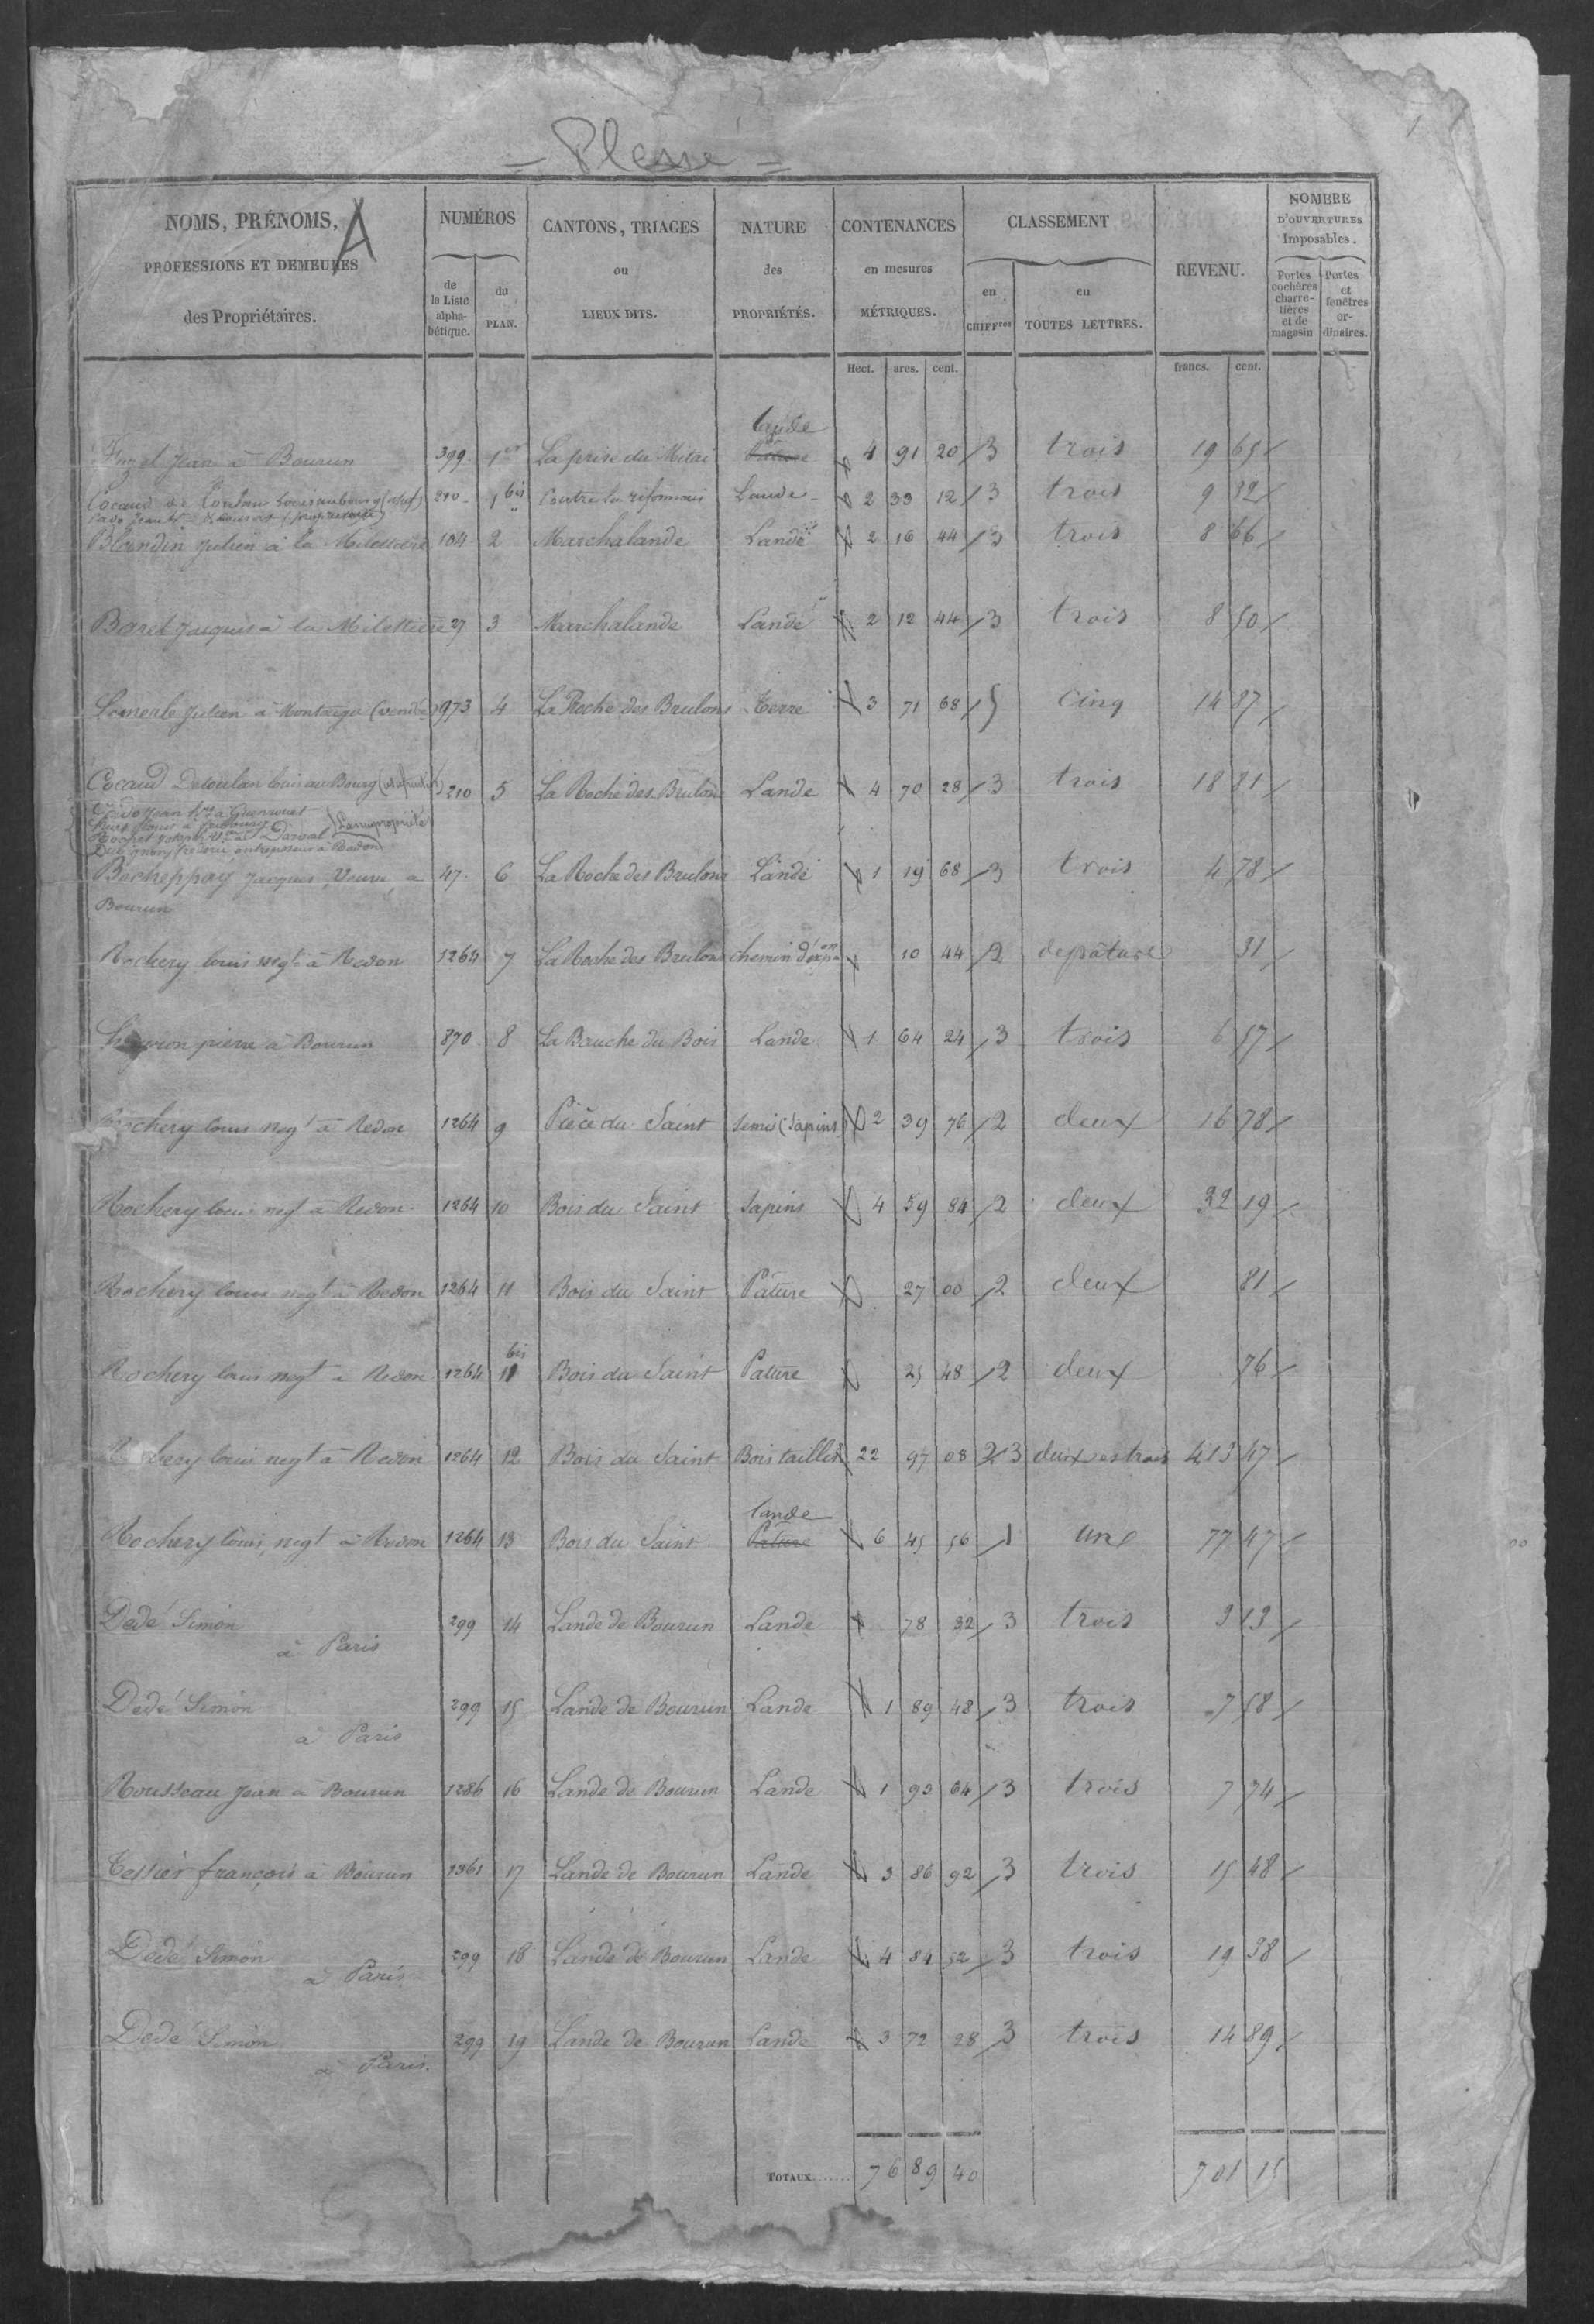 = Plessé =
NOMS, PRÉNOMS, A
PROFESSIONS ET DEMEURES
des Propriétaires.
NUMÉROS
de la Liste alpha-bétique.
du PLAN.
CANTONS, TRIAGES
ou
LIEUX DITS.
NATURE
des
PROPRIÉTÉS.
CONTENANCES
en mesures
MÉTRIQUES.
CLASSEMENT
en CHIFFres
en TOUTES LETTRES.
REVENU.
NOMBRE
D'OUVERTURES
Imposables.
Portes cochères charre-tières et de magasin
Portes et fenêtres or-dinaires.
Hect. ares. cent. francs. cent.
Lande
Jean à Bourun 399 1er La prise du Pature 4 91 20 3 trois 19 65
Cocaud 210 1 bis Contre la Lande 2 33 12 3 trois 9 32
Blandin Julien à la Milottière 104 2 Marchalande Lande 2 16 44 3 trois 8 66
Baret Jacques à la Milottière 27 3 Marchalande Lande 2 12 44 3 trois 8 50
Julien à Montaigu (vendée) 973 4 La Roche des Brulons Terre 3 71 68 5 cinq 14 87
Cocaud Louis au Bourg 210 5 La Roche des Brulons Lande 4 70 28 3 trois 18 81
Jean à Guenrouet
Louis à
Joseph à Derval
entrepreneur à Redon
Jacques, Veuve, à 47 6 La Roche des Brulons Lande 1 19 68 3 trois 4 78
Bourun
Rochery louis negt à Redon 1264 7 La Roche des Brulons chemin d'expon 10 44 2 de pâture 31
pierre à Bourun 870 8 La Bauche du Bois Lande 1 64 24 3 trois 6 57
Rochery louis negt à Redon 1264 9 Pièce du Saint semis (sapins) 2 39 76 2 deux 16 78
Rochery louis negt à Redon 1264 10 Bois du Saint Sapins 4 59 84 2 deux 32 19
Rochery louis negt à Redon 1264 11 Bois du Saint Pature 27 00 2 deux 81
bis
Rochery louis negt à Redon 1264 11 Bois du Saint Pature 25 48 2 deux 76
Rochery louis negt à Redon 1264 12 Bois du Saint Bois taillis 22 97 08 2 3 deux et trois 413 47
lande
Rochery louis, negt à Redon 1264 13 Bois du Saint Pature 6 45 56 1 une 77 47
Dedé Simon 299 14 Lande de Bourun Lande 78 32 3 trois 3 13
à Paris
Dedé Simon 299 15 Lande de Bourun Lande 1 89 48 3 trois 7 58
à Paris
Rousseau Jean à Bourun 1286 16 Lande de Bourun Lande 1 93 64 3 trois 7 74
Tessier françois à Bourun 1361 17 Lande de Bourun Lande 3 86 92 3 trois 15 48
Dedé Simon 299 18 Lande de Bourun Lande 4 84 52 3 trois 19 38
à Paris
Dedé Simon 299 19 Lande de Bourun Lande 3 72 28 3 trois 14 89
à Paris.
TOTAUX...... 76 89 40 701 15